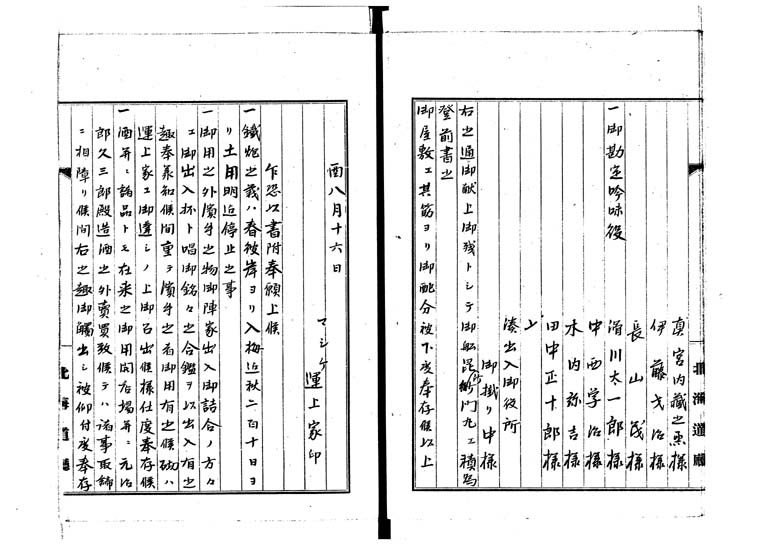 真宮内蔵之丞様
伊藤戈治様
長山茂様
滑川太一郎様
一御勘定吟味役
中西学治様
木内弥吉様
田中正十郎様
上
湊出入御役所
御掛り中様
右之通御献上御残トシテ御船昆衛門丸エ積為
登前書之
御屋敷エ其筋ヨリ御配分被下度奉存候以上
北海道廳
酉八月十六日
マシケ 運上家印
乍恐以書附奉願上候
一鐵炮之義ハ春彼岸ヨリ入梅迄秋二百十日ヨ
リ土用明迄停止之事
一御用之外濱方之物御陣家出入御詰合ノ方々
エ御出入杯ト唱御銘々之合鑑ヲ以出入有之
趣奉義知候間重テ濱方之者御用有之候砌ハ
運上家エ御達シノ上御召出候様仕度奉存候
一酒并ニ諸品トモ在来之御用聞居場并ニ元治
郎久三郎殿造酒之外賣買致候テハ諸事取締
ニ相障リ候間右之趣御觸出シ被仰付度奉存
北海道廳